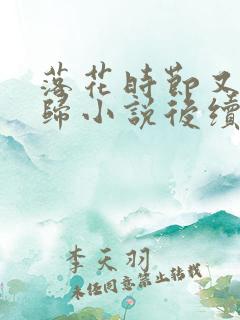 落花時節又
歸小說後續
李天羽
未經同意禁止轉載